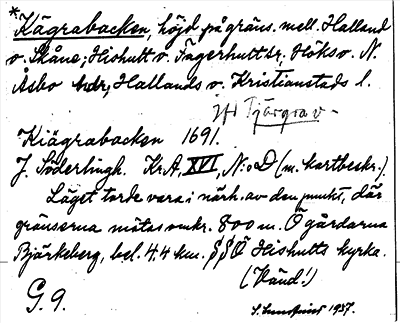 *Kägrabacken, höjd på gräns. mell. Halland
o. Skåne; Hishult o. Fagerhult sr. Höks o. N.
Åsbo hdr, Hallands o. Kristianstads l.
Jfr Tjärgrav-
Kiägrabacken 1691.
J. Söderlingh. KrA, XVI, N:o D (m. kartbeskr.)
Läget torde vara i närh. av den punkt, där
gränserna mötas omkr. 800 m. Ö gårdarna
Bjärkeberg, bel. 4.4 km. SSÖ Hishults kyrka.
(Vänd!)
G. 9.
1937.